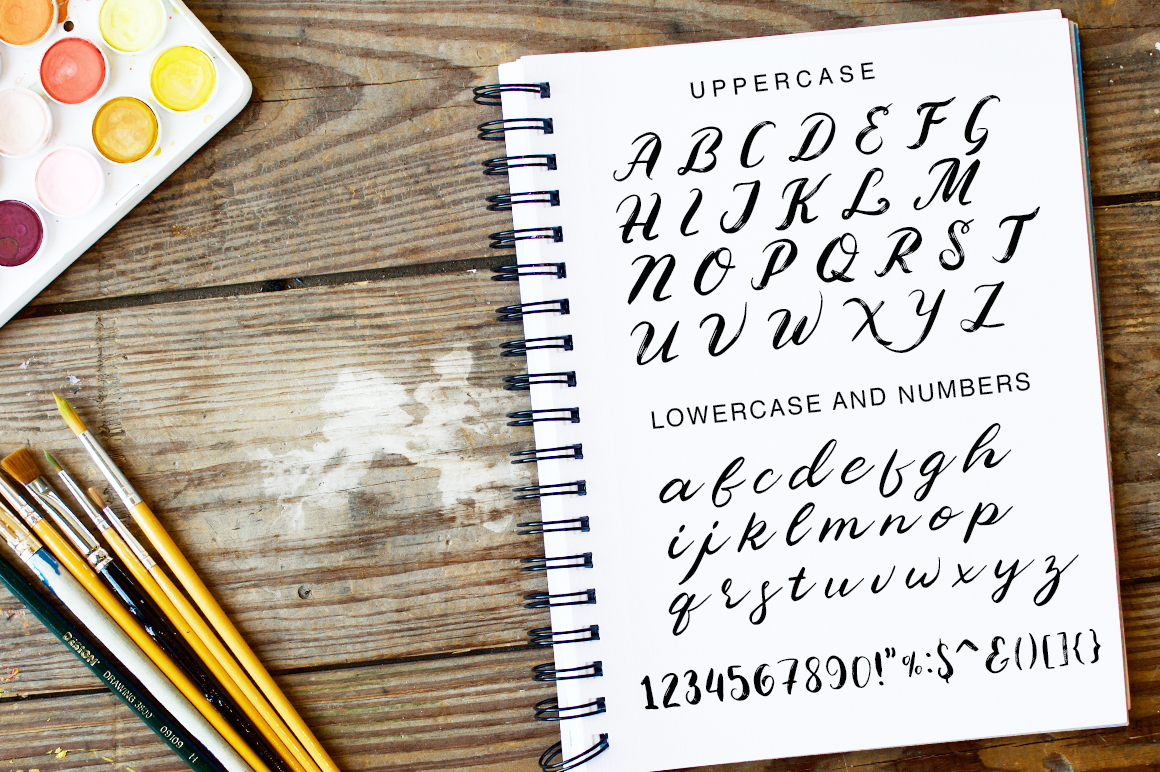 UPPERCASE
A B C D E F G
H I J K L M
N O P Q R S T
U V W X Y Z
LOWERCASE AND NUMBERS
a b c d e f g h
i j k l m n o p
q r s t u v w x y z
1234567890!"%:$^&()[]{}
DESIGN DRAWING 3800